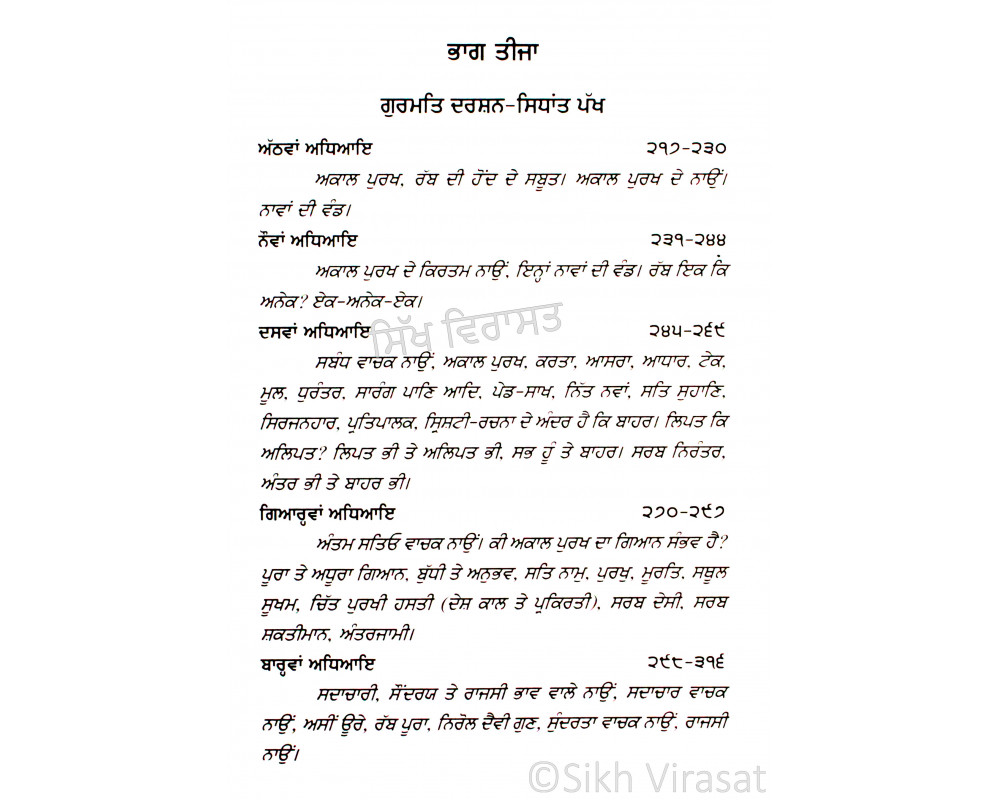 ਭਾਗ ਤੀਜਾ
ਗੁਰਮਤਿ ਦਰਸ਼ਨ-ਸਿਧਾਂਤ ਪੱਖ
ਅੱਠਵਾਂ ਅਧਿਆਇ ੨੧੭-੨੩੦
ਅਕਾਲ ਪੁਰਖ, ਰੱਬ ਦੀ ਹੋਂਦ ਦੇ ਸਬੂਤ। ਅਕਾਲ ਪੁਰਖ ਦੇ ਨਾਉਂ।
ਨਾਵਾਂ ਦੀ ਵੰਡ।
ਨੌਵਾਂ ਅਧਿਆਇ ੨੩੧-੨੪੪
ਅਕਾਲ ਪੁਰਖ ਦੇ ਕਿਰਤਮ ਨਾਉਂ, ਇਨ੍ਹਾਂ ਨਾਵਾਂ ਦੀ ਵੰਡ। ਰੱਬ ਇਕ ਕਿ
ਅਨੇਕ? ਏਕ-ਅਨੇਕ-ਏਕ।
ਸਿੱਖ ਵਿਰਾਸਤ
ਦਸਵਾਂ ਅਧਿਆਇ ੨੪੫-੨੬੯
ਸਬੰਧ ਵਾਚਕ ਨਾਉਂ, ਅਕਾਲ ਪੁਰਖ, ਕਰਤਾ, ਆਸਰਾ, ਆਧਾਰ, ਟੇਕ,
ਮੂਲ, ਧੁਰੰਤਰ, ਸਾਰੰਗ ਪਾਣਿ ਆਦਿ, ਪੇਡ-ਸਾਖ, ਨਿੱਤ ਨਵਾਂ, ਸਤਿ ਸੁਹਾਣਿ,
ਸਿਰਜਨਹਾਰ, ਪ੍ਰਤਿਪਾਲਕ, ਸ੍ਰਿਸ਼ਟੀ-ਰਚਨਾ ਦੇ ਅੰਦਰ ਹੈ ਕਿ ਬਾਹਰ। ਲਿਪਤ ਕਿ
ਅਲਿਪਤ? ਲਿਪਤ ਭੀ ਤੇ ਅਲਿਪਤ ਭੀ, ਸਭ ਹੂੰ ਤੇ ਬਾਹਰ। ਸਰਬ ਨਿਰੰਤਰ,
ਅੰਤਰ ਭੀ ਤੇ ਬਾਹਰ ਭੀ।
ਗਿਆਰ੍ਹਵਾਂ ਅਧਿਆਇ ੨੭੦-੨੯੭
ਅੰਤਮ ਸਤਿਓ ਵਾਚਕ ਨਾਉਂ। ਕੀ ਅਕਾਲ ਪੁਰਖ ਦਾ ਗਿਆਨ ਸੰਭਵ ਹੈ?
ਪੂਰਾ ਤੇ ਅਧੂਰਾ ਗਿਆਨ, ਬੁੱਧੀ ਤੇ ਅਨੁਭਵ, ਸਤਿ ਨਾਮੁ, ਪੁਰਖੁ, ਮੂਰਤਿ, ਸਥੂਲ
ਸੂਖਮ, ਚਿੱਤ ਪੁਰਖੀ ਹਸਤੀ (ਦੇਸ਼ ਕਾਲ ਤੇ ਪ੍ਰਕਿਰਤੀ), ਸਰਬ ਦੇਸੀ, ਸਰਬ
ਸ਼ਕਤੀਮਾਨ, ਅੰਤਰਜਾਮੀ।
ਬਾਰ੍ਹਵਾਂ ਅਧਿਆਇ ੨੯੮-੩੧੬
ਸਦਾਚਾਰੀ, ਸੌਂਦਰਯ ਤੇ ਰਾਜਸੀ ਭਾਵ ਵਾਲੇ ਨਾਉਂ, ਸਦਾਚਾਰ ਵਾਚਕ
ਨਾਉਂ, ਅਸੀਂ ਊਰੇ, ਰੱਬ ਪੂਰਾ, ਨਿਰੋਲ ਦੈਵੀ ਗੁਣ, ਸੁੰਦਰਤਾ ਵਾਚਕ ਨਾਉਂ, ਰਾਜਸੀ
ਨਾਉਂ।
©Sikh Virasat